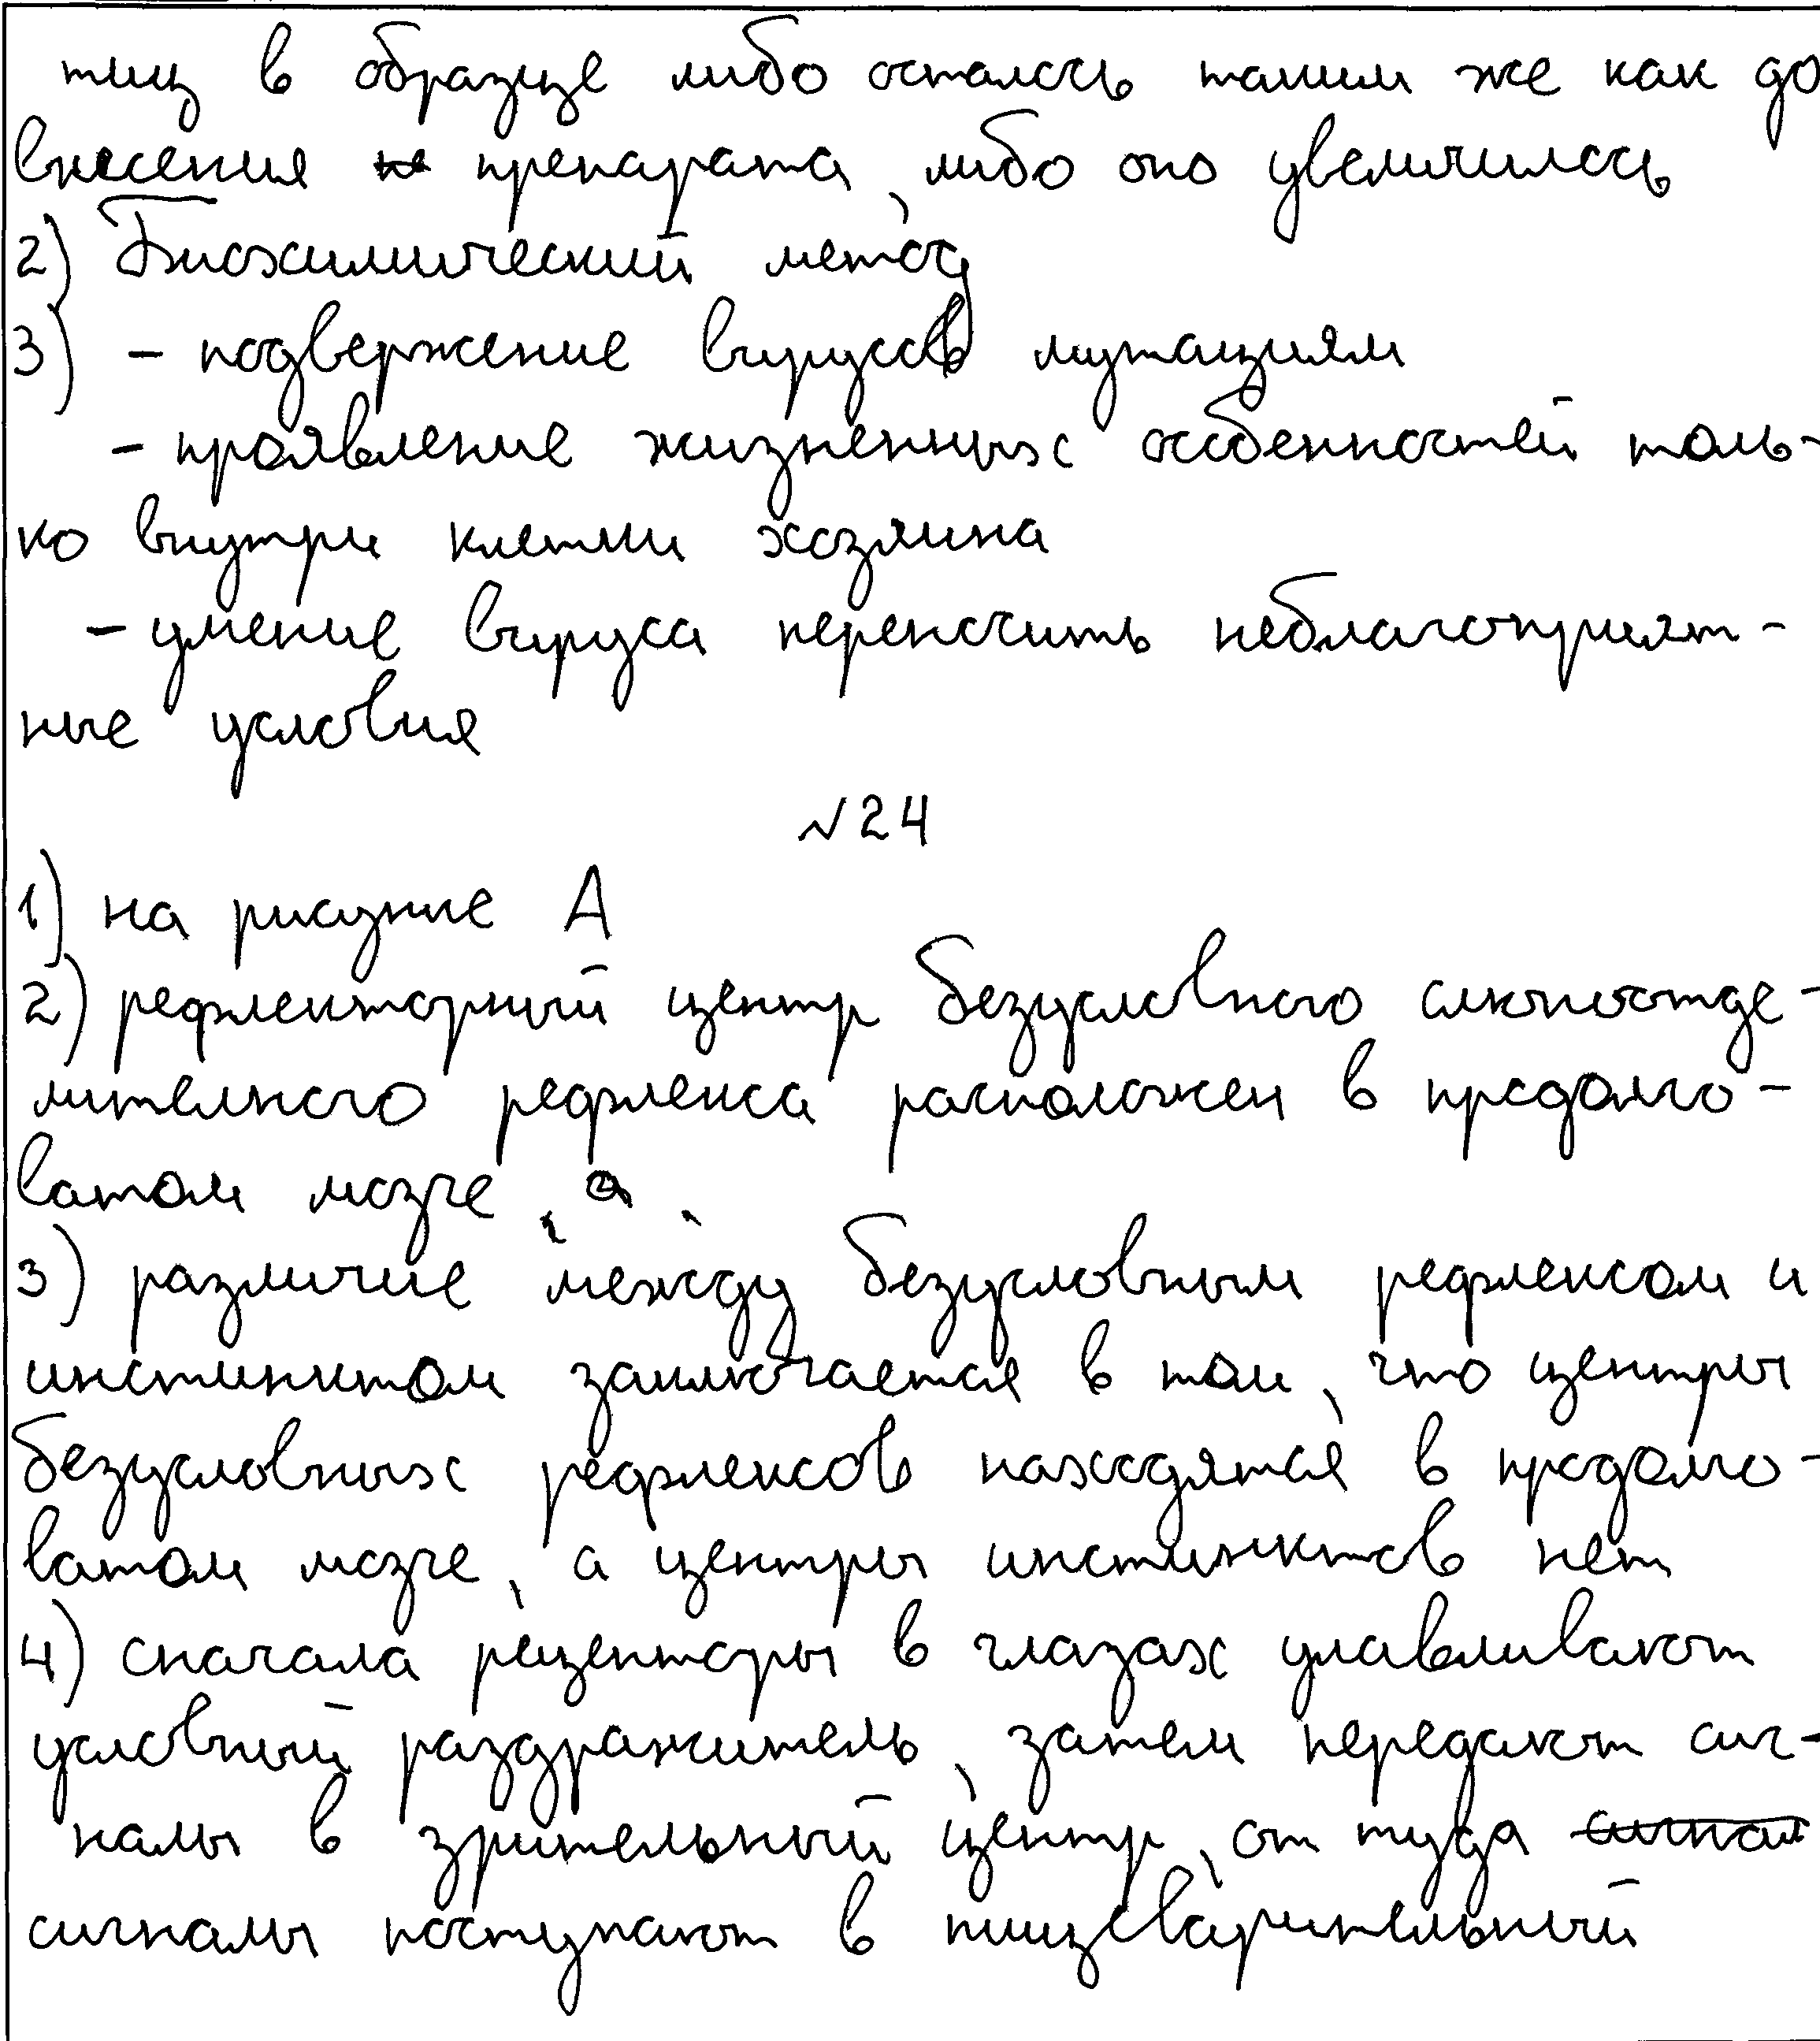 тиц в образце либо осталось таким же как до
внесения не препарата, либо оно увеличилось
2) Биохимический метод
3) - подвержение вирусов мутациям
- проявление жизненных особенностей толь-
ко внутри клетки хозяина
- умение вируса переносить неблагоприят-
ные условия
№24
1) на рисунке А
2) рефлекторный центр безусловного слюноотде-
лительного рефлекса расположен в продолго-
ватом мозге, а
3) различие между безусловным рефлексом и
инстинктом заключается в том, что центры
безусловных рефлексов находятся в продолго-
ватом мозге, а центры инстинктов нет
4) сначала рецепторы в глазах улавливают
условный раздражитель, затем передают сиг-
налы в зрительный центр, от туда сигнал
сигналы поступают в пищеварительный